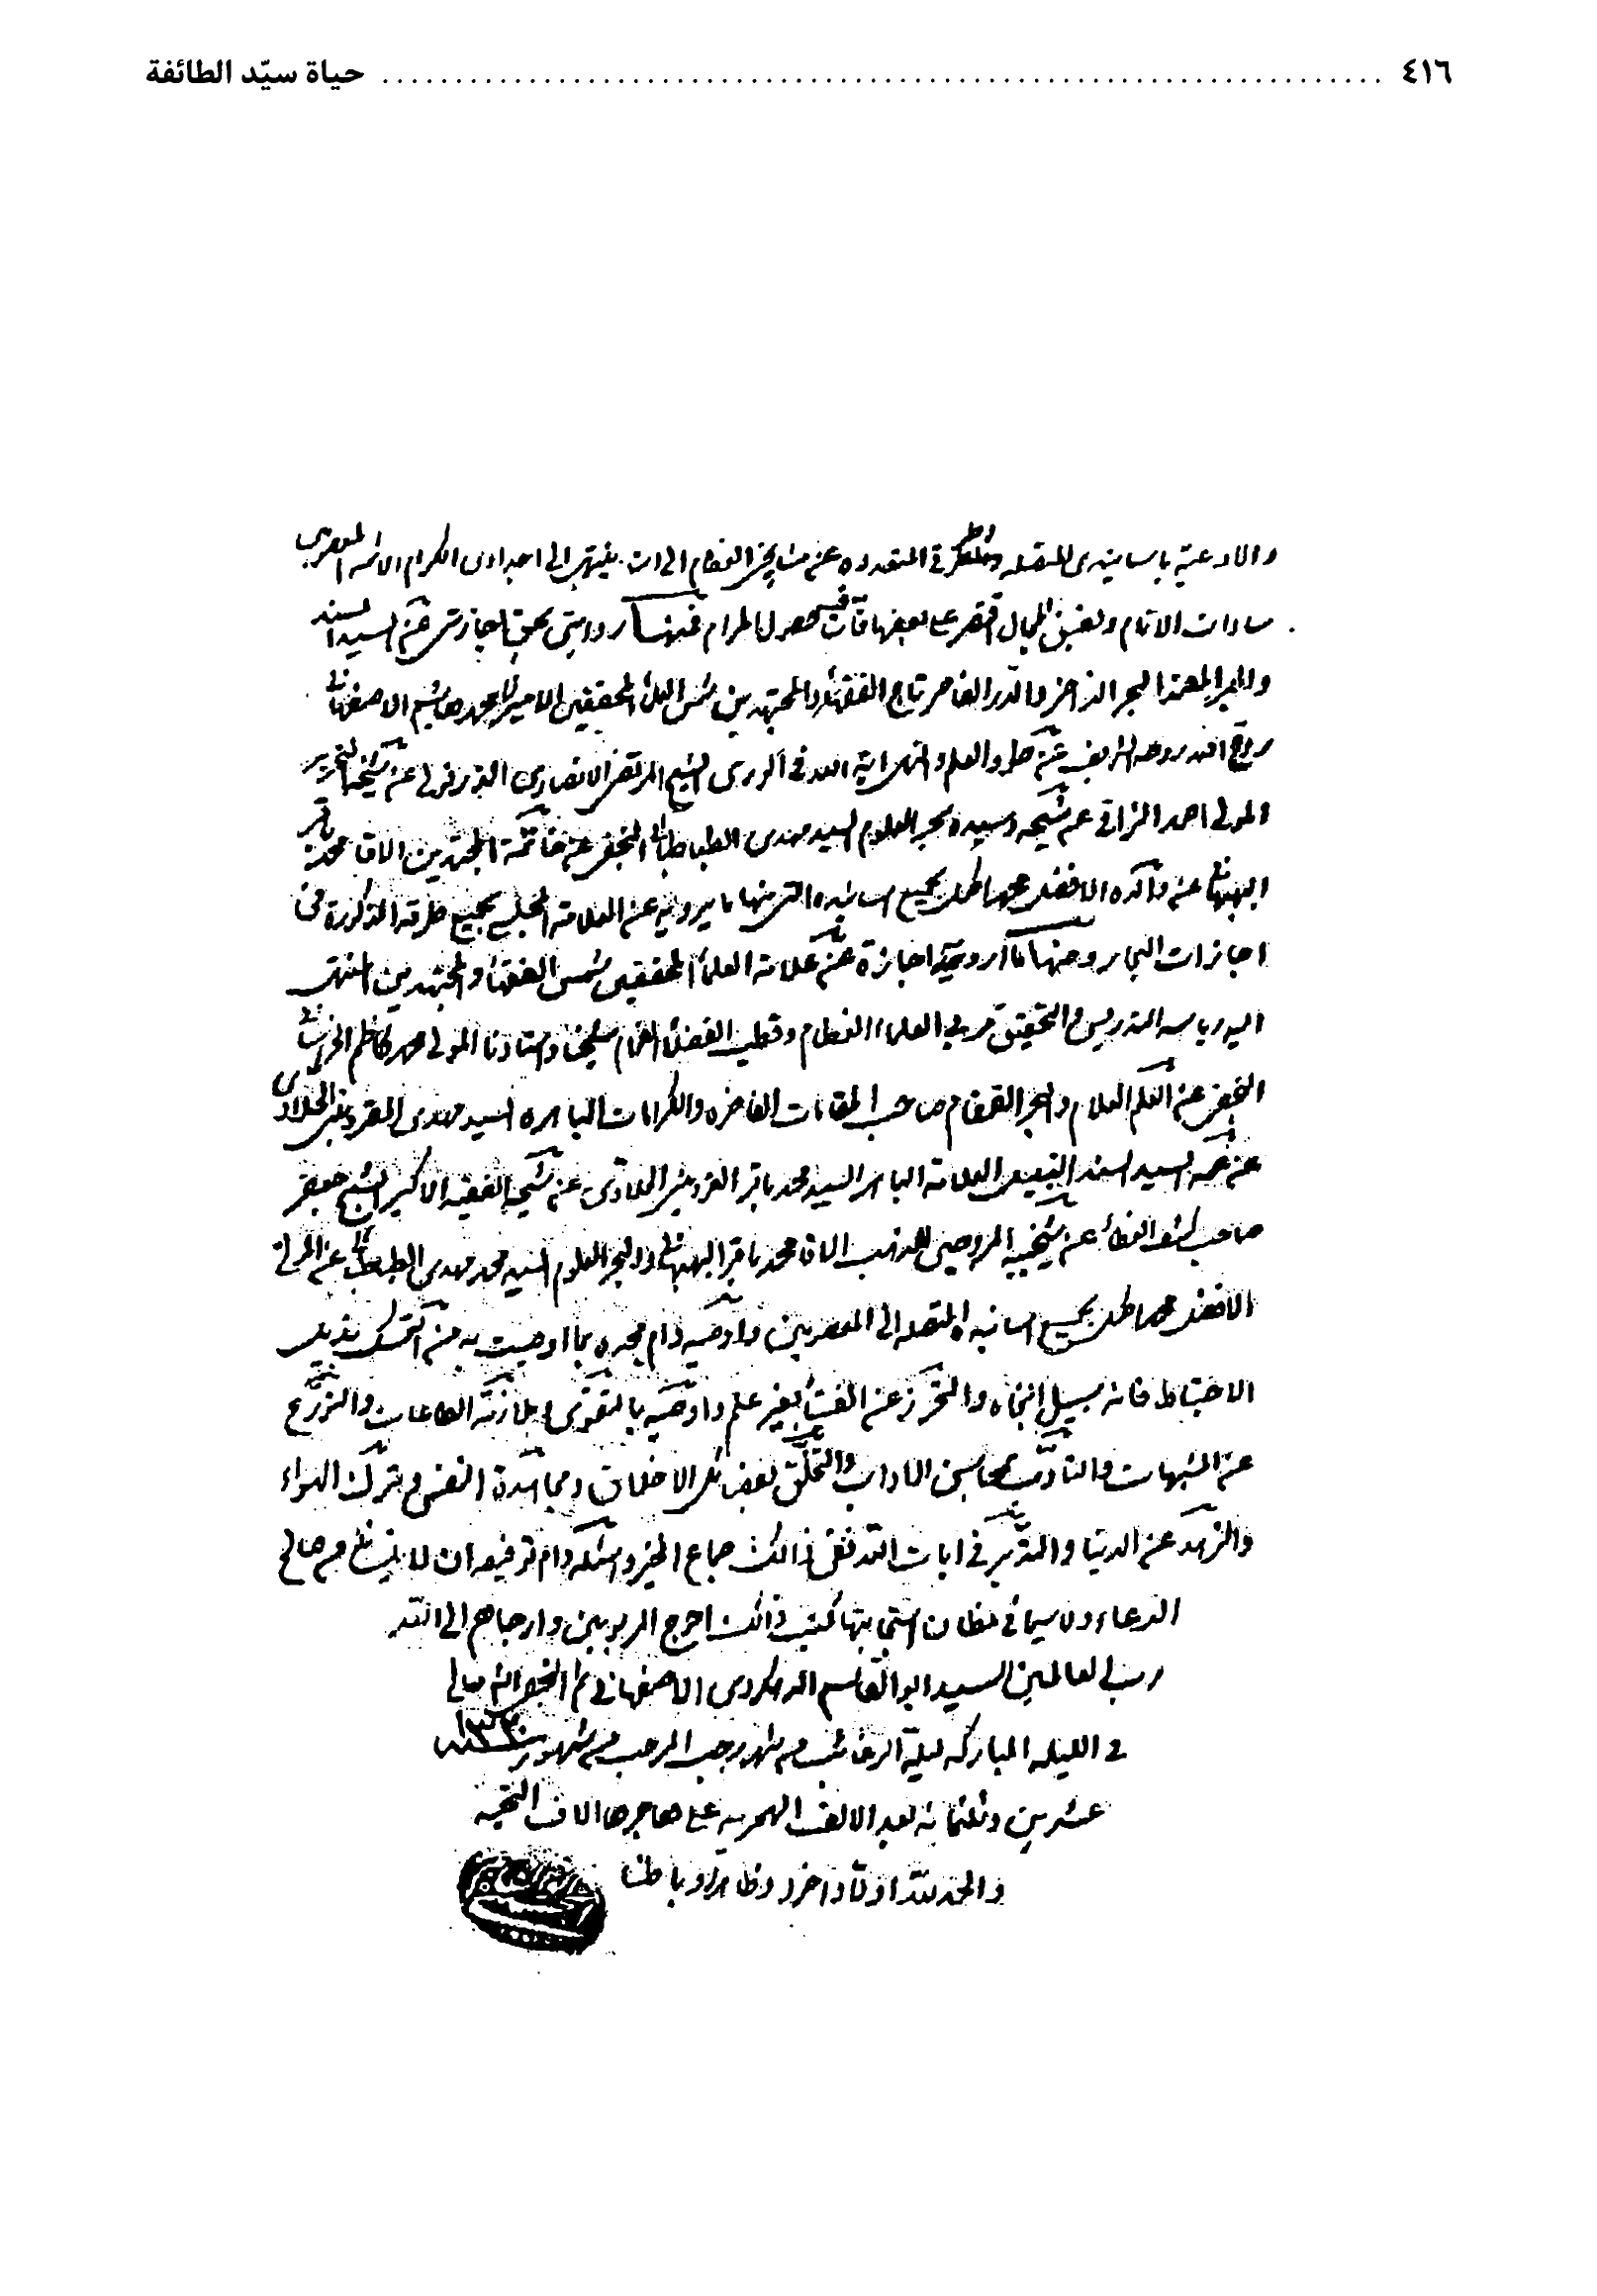 ٤١٦ ........ حياة سيّد الطائفة
والادعية باسانيدى المتصله وطرقى المتعدده عن مشايخى العظام الى ان ينتهى الى اجدادى الكرام الائمه المعصومين
سادات الانام ولضيق المجال اقتصر على بعضها فمنها روايتى بحق اجازتى عن السيد السند
والمعتمد البحر الذاخر والدر الفاخر تاج الفقهاء والمجتهدين شمس العلماء المحققين الامير محمد هاشم الاصفهانى
روح الله روحه الشريف عن العلم الورى الشيخ المرتضى الانصارى الدزفولى عن شيخه النحرير
المولى احمد النراقى عن شيخه وسيده بحر العلوم السيد مهدى الطباطبائى النجفى عن خاتمة المجتهدين الاقا محمد باقر
البهبهانى عن والده الافضل محمد اكمل بجميع اسانيده التى منها ما يرويه عن العلامة المجلسى بجميع طرقه المذكورة فى
اجازات البحار ومنها ما ارويه اجازة عن علامة العلماء المحققين شمس الفقهاء والمجتهدين المنتهى
اليه رياسه التدريس والتحقيق مربى العلماء العظام وقطب الفضلاء الفخام شيخنا واستادنا المولى محمد كاظم الخراسانى
النجفى عن العلم العلام والبحر القمقام صاحب المقامات الفاخره والكرامات الباهره السيد مهدى القزوينى الحلاوى
عن عمه السيد السند العلامة السيد محمد باقر القزوينى الحلاوى عن شيخه الفقيه الاكبر الشيخ جعفر
صاحب كشف الغطاء عن شيخيه المروجين للمذهب الاقا محمد باقر البهبهانى والبحر العلوم السيد محمد مهدى الطباطبائى عن المولى
الافضل محمد اكمل بجميع اسانيده المتصله الى المعصومين واوصيه دام مجده بما اوصيت به من التمسك بذيل
الاحتياط فانه سبيل النجاه والتحرز عن الفتيا بغير علم واوصيه بالتقوى وملازمة الطاعات والتورع
عن الشبهات والتادب بمحاسن الاداب والتخلق بفضائل الاخلاق ومجاهدة النفس وترك الهواء
والزهد عن الدنيا والتدبر فى ايات الله ففى ذالك جماع الخير واسئله دام توفيقه ان لا ينسانى من صالح
الدعاء ولا سيما فى مظان استجابتها كتب ذالك احوج المربوبين وارجاهم الى الله
رب العالمين السيد ابو القاسم الدهكردى الاصفهانى
فى الليله المباركه ليلة الرغائب من شهر رجب المرجب من شهور
عشرين وثلثمائه بعد الالف الهجريه على هاجرها الاف التحيه
والحمد لله اولا واخرا وظاهرا وباطنا